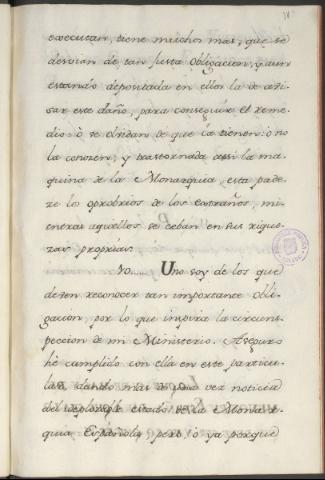 executan, tiene muchos mas, que se
desvian de tan justa obligacion, y aun
estando depositada en ellos la de avi-
sar este daño, para conseguir el reme-
dio ò se olvidan de que la tienen, ò no
la conozen, y trastornada assi la ma-
quina de la Monarquia, esta pade-
ze los oprobrios de los extraños, mi-
entras aquellos se ceban en sus rique-
zas proprias.
Yo...... Uno soy de los que
deven reconocer tan importante obli-
gacion, por lo que inspira la circuns-
peccion de mi Ministerio. Aseguro
hè cumplido con ella en este particu-
lar, dando mas de una vez noticia
del deplorable estado de la Monar-
quia Española, pero ò ya porque